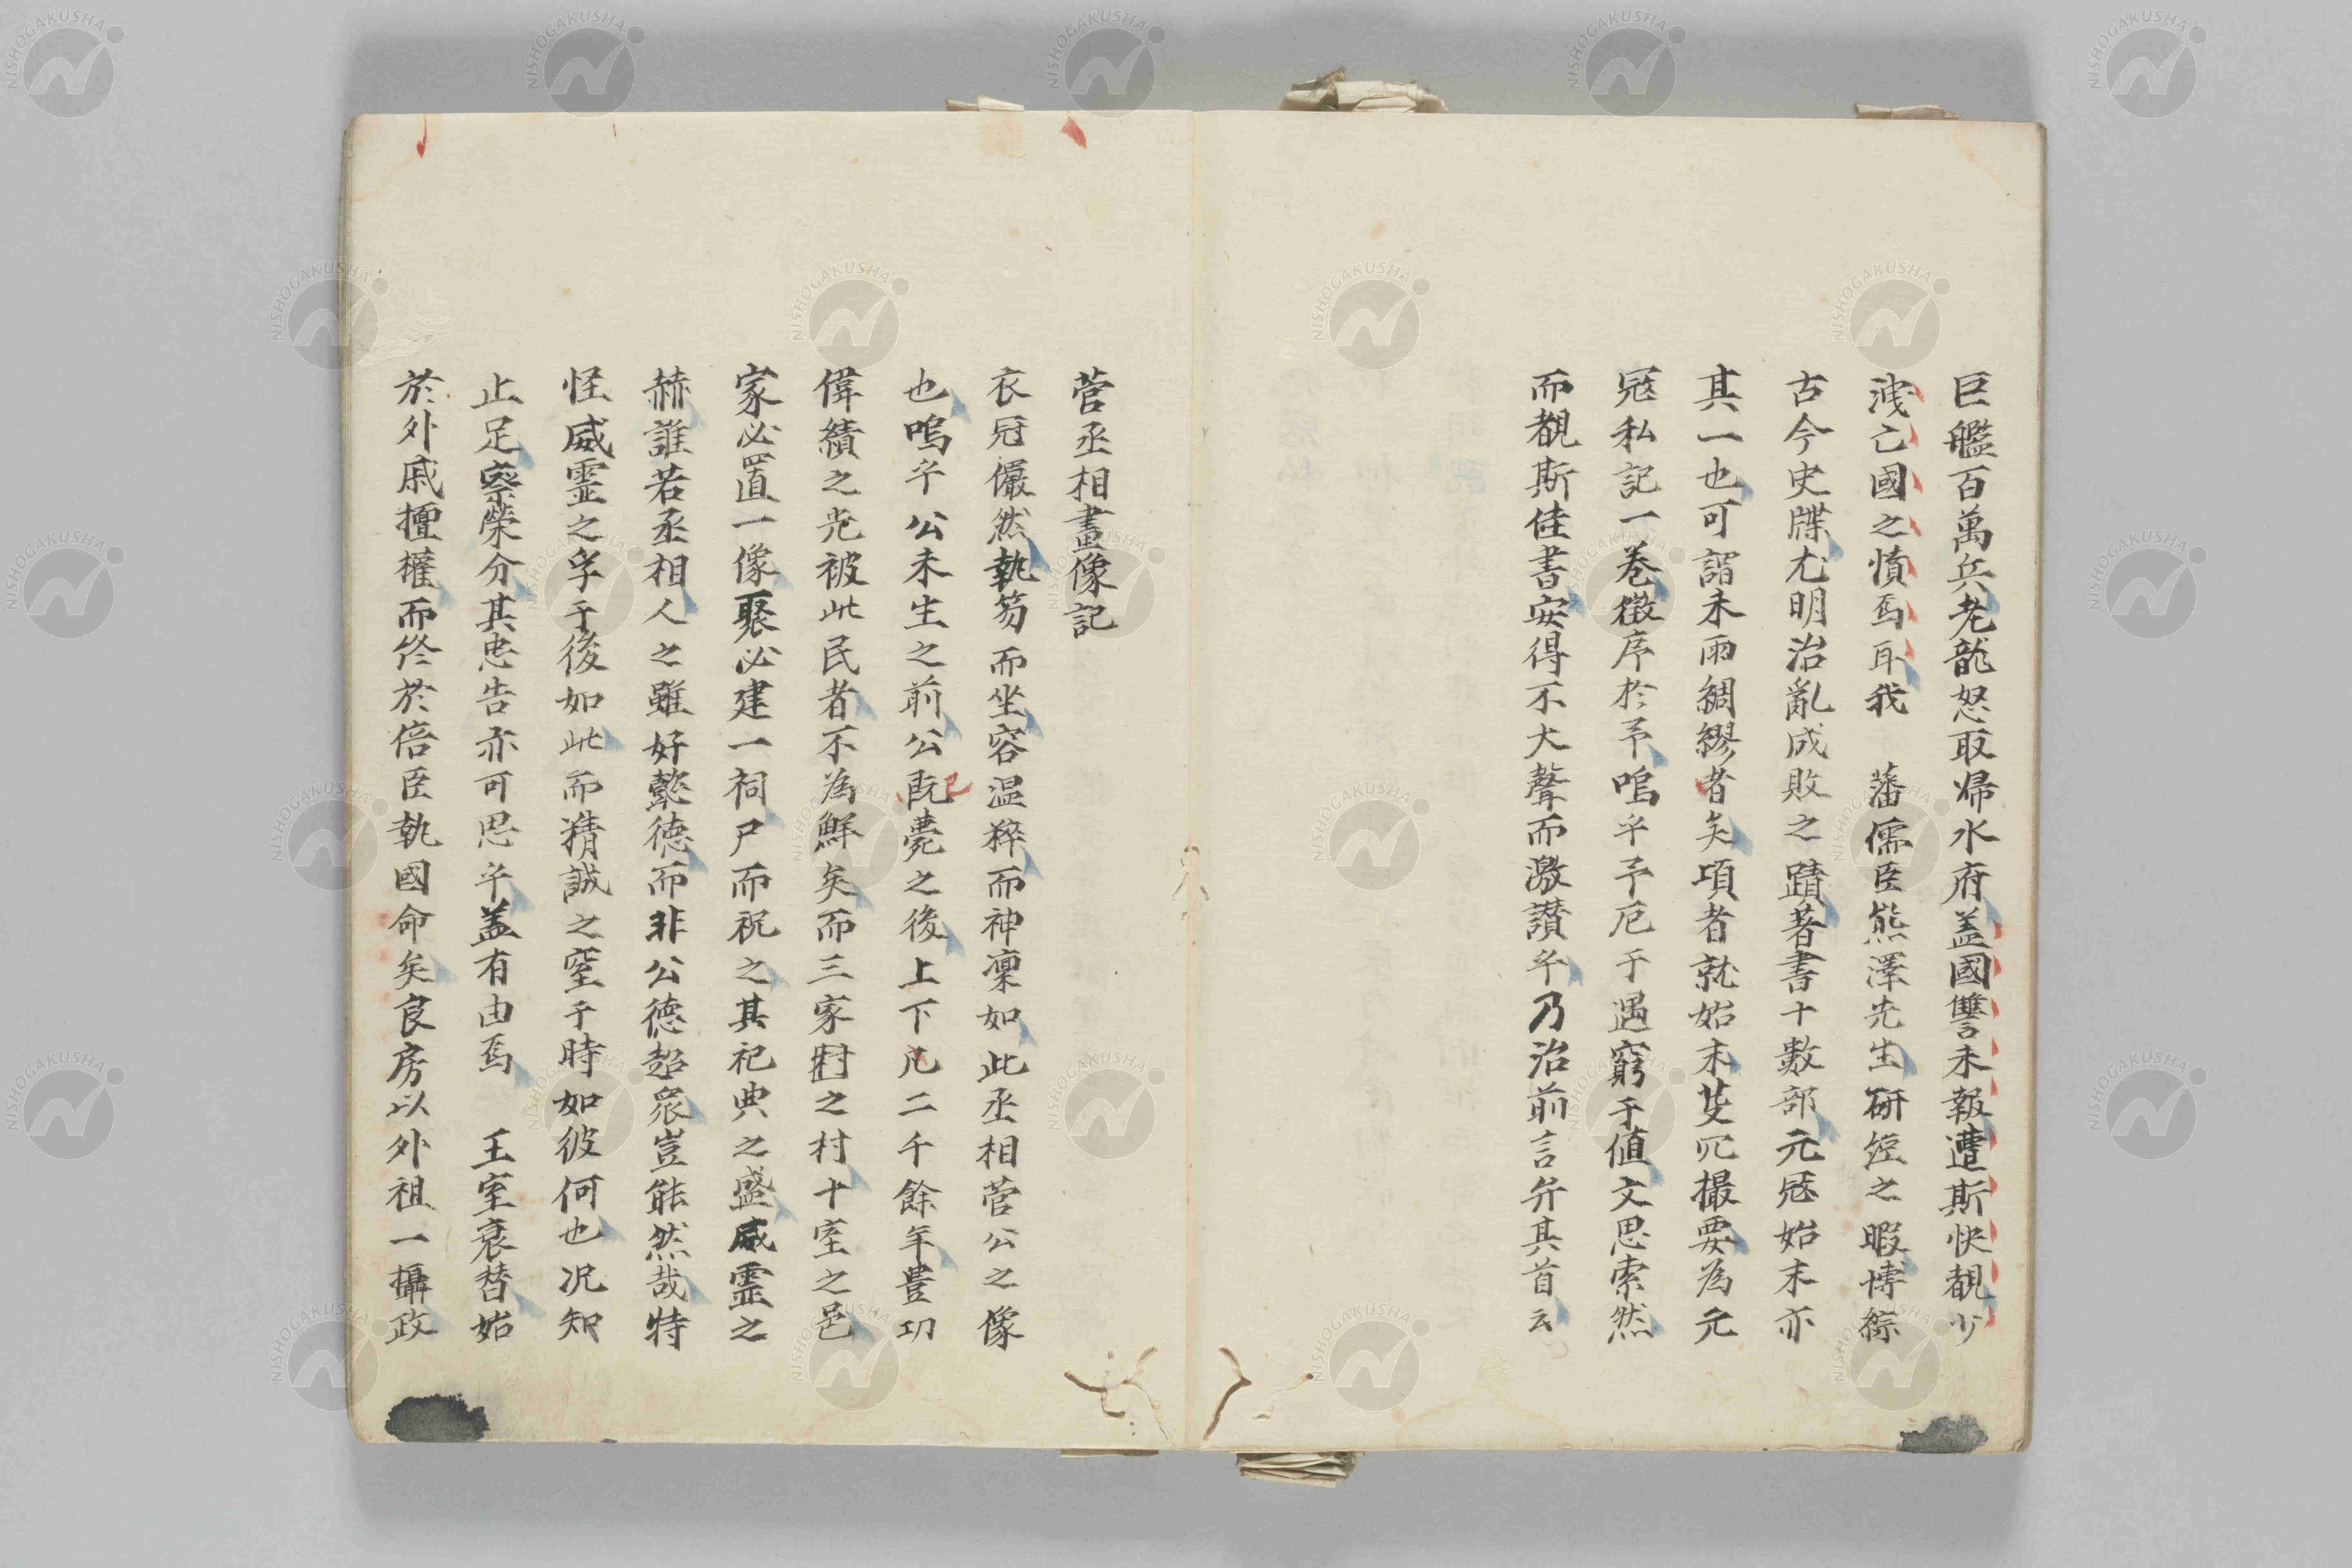 巨艦百萬兵老龍怒取帰水府盖國讐未報遭斯快覩少
洩亡國之憤焉耳我　藩儒臣熊澤先生研經之暇博綜
古今史牒尤明治亂成敗之蹟著書十數部元冦始末亦
其一也可謂未雨綢繆者矣項者就始末芟冗撮要為元
冦私記一卷徴序於予嗚乎予厄于遇窮于値文思索然
而覩斯佳書安得不大聲而激讃乎乃治前言弁其首云
菅丞相畫像記
衣冠儼然執笏而坐容温粹而神凜如此丞相菅公之像
也嗚乎公未生之前公既薨之後上下凡二千餘年豊功
已
偉績之光被此民者不為鮮矣而三家對之村十室之邑
家必置一像聚必建一祠尸而祝之其祀典之盛威霊之
赫誰若丞相人之雖好懿徳而非公徳超衆豈能然哉特
怪威霊之孚于後如此而精誠之窒于時如彼何也况知
止足察榮分其忠告亦可思乎盖有由焉　王室衰替始
於外戚擅權而终於倍臣執國命矣良房以外祖一攝政
NISHOGAKUSHA